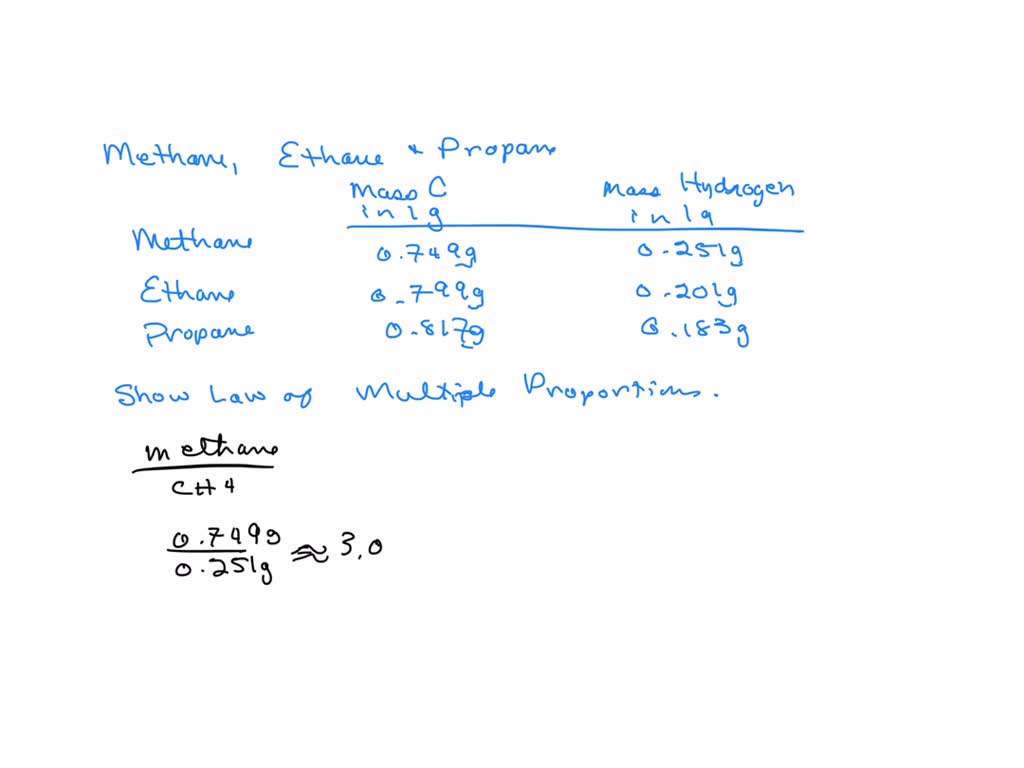 Methane, Ethane & Propane
Mass C Mass Hydrogen
in 1g in 1g
Methane 0.749g 0.251g
Ethane 0.799g 0.201g
Propane 0.817g 0.183g
Show Law of Multiple Proportions.
methane
CH4
0.749g
0.251g ≈ 3.0